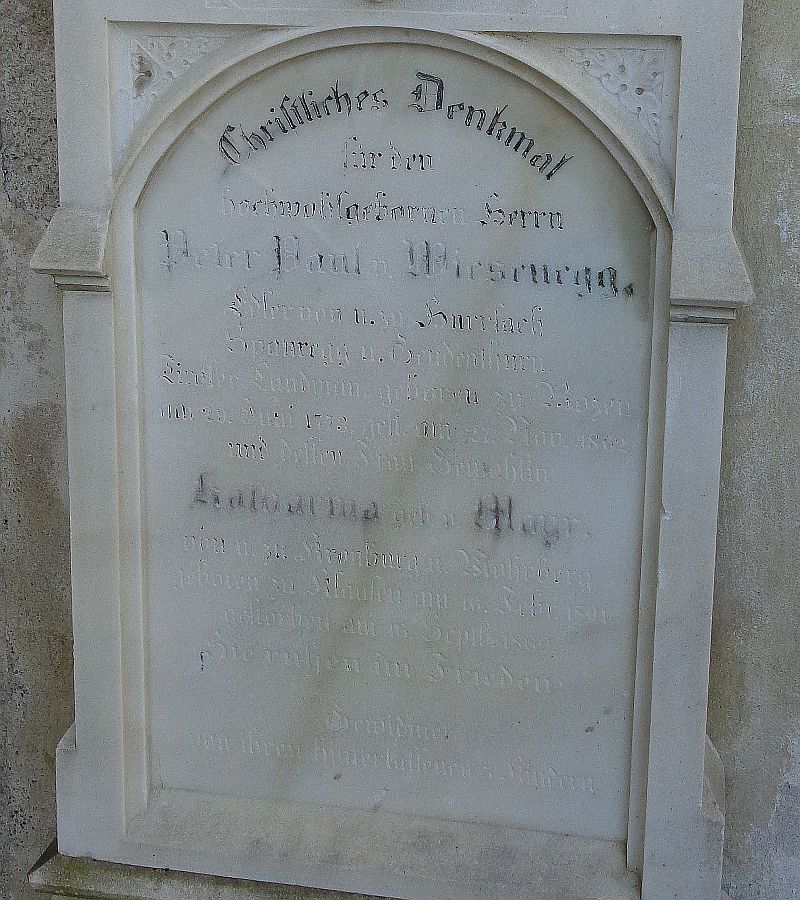 Christliches Denkmal
für den
Hochwohlgebornen Herrn
Peter Paul v. Wiesenegg,
Edler von u. zu
u.
Tiroler Landman, geboren zu Bozen
Juni 1773, gest. am Nov.
und dessen Frau Gemahlin
Katharina geb. v. Mayr,
von u. zu Kronburg u. Mohrberg
geboren zu Klausen am 16. Febr. 1801
gestorben am Septb.
Sie ruhen im Frieden
Gewidmet
von ihren hinterlassenen 3 Kindern.